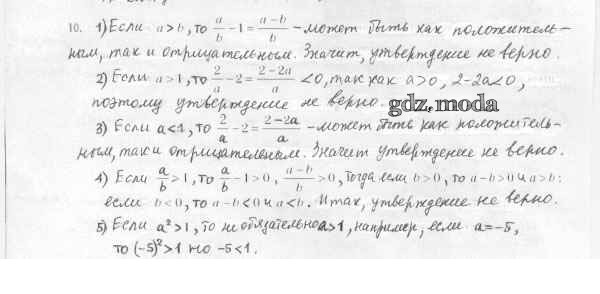 10. 1) Если a > b, то a/b − 1 = (a−b)/b – может быть как положитель-
ным, так и отрицательным. Значит, утверждение не верно.
2) Если a > 1, то 2/a − 2 = (2−2a)/a < 0, так как a > 0, 2−2a < 0,
поэтому утверждение не верно.
gdz.moda
3) Если a < 1, то 2/a − 2 = (2−2a)/a – может быть как положитель-
ным, так и отрицательным. Значит утверждение не верно.
4) Если a/b > 1, то a/b − 1 > 0, (a−b)/b > 0, тогда если b > 0, то a−b > 0 и a > b;
если b < 0, то a−b < 0 и a < b. Итак, утверждение не верно.
5) Если a² > 1, то не обязательно a > 1, например, если a = −5,
то (−5)² > 1 но −5 < 1.